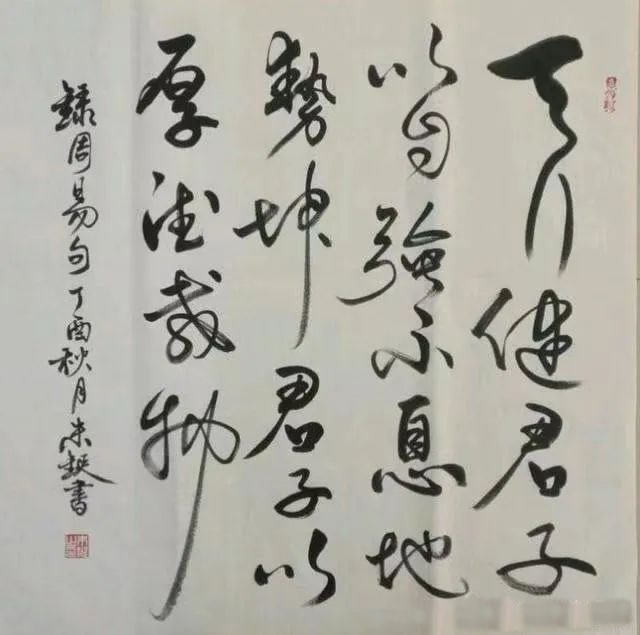 天行健君子
以自強不息地
勢坤君子以
厚德載物
錄周易句丁酉秋月朱挺書